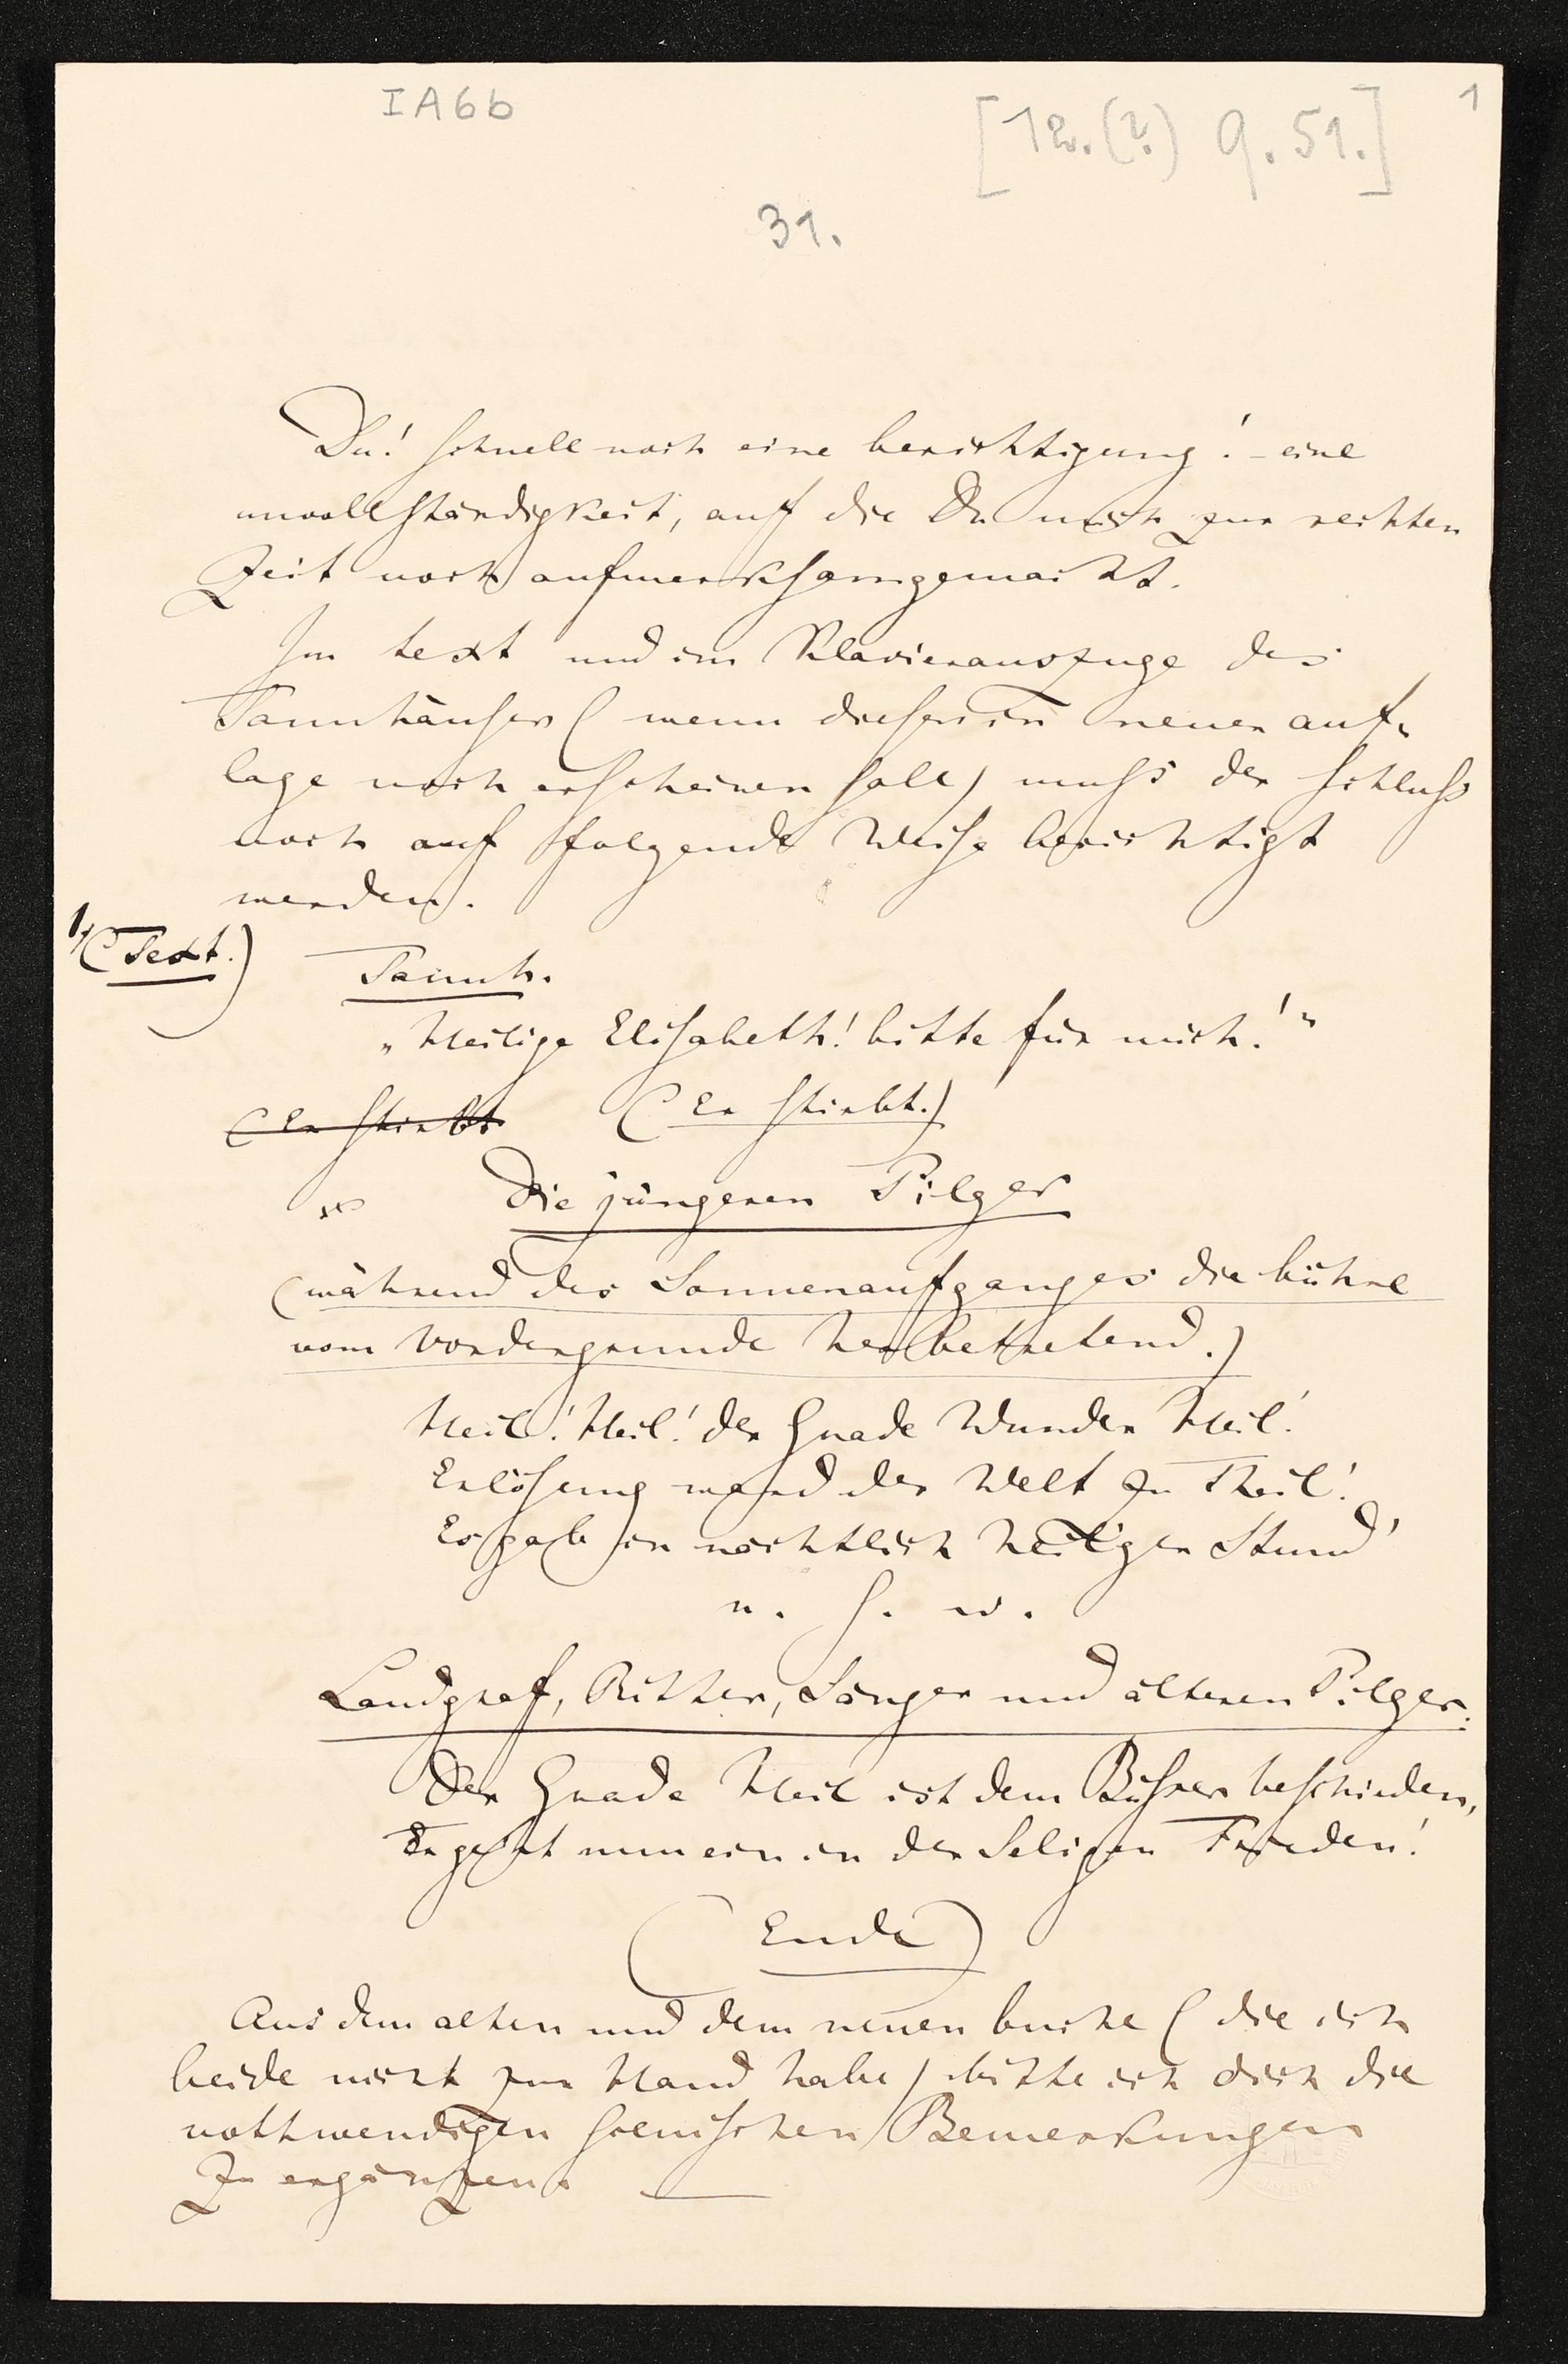 IA6b
[12.(?) 9.51.]
1
31.
Du! schnell noch eine berichtigung! – eine
unvollständigkeit, auf die Du mich zur rechten
Zeit noch aufmerksam gemacht.
Im text und im Klavierauszuge des
Tannhäusers (wenn dieser in neuer auf-
lage noch erscheinen soll) muß der schluß
noch auf folgende Weise berichtigt
werden.
1, (Text.)
Tannh.
„Heilige Elisabeth! bitte für mich!"
(Er stirbt (Er stirbt.)
Die jüngeren Pilger
(während des Sonnenaufganges die bühne
vom Vordergrunde her betretend.)
Heil! Heil! der Gnade Wunder Heil!
Erlösung ward der Welt zu Theil!
Es gab in nächtlich heil'ger Stund'
u. s. w.
Landgraf, Ritter, Sänger und älteren Pilger:
Der Gnade Heil ist dem Büßer beschieden,
Er geht nun ein in der Seligen Frieden!
(Ende)
Aus dem alten und dem neuen buche (die ich
beide nicht zur Hand habe) bitte ich dich die
nothwendigen scenischen Bemerkungen
zu ergänzen. —